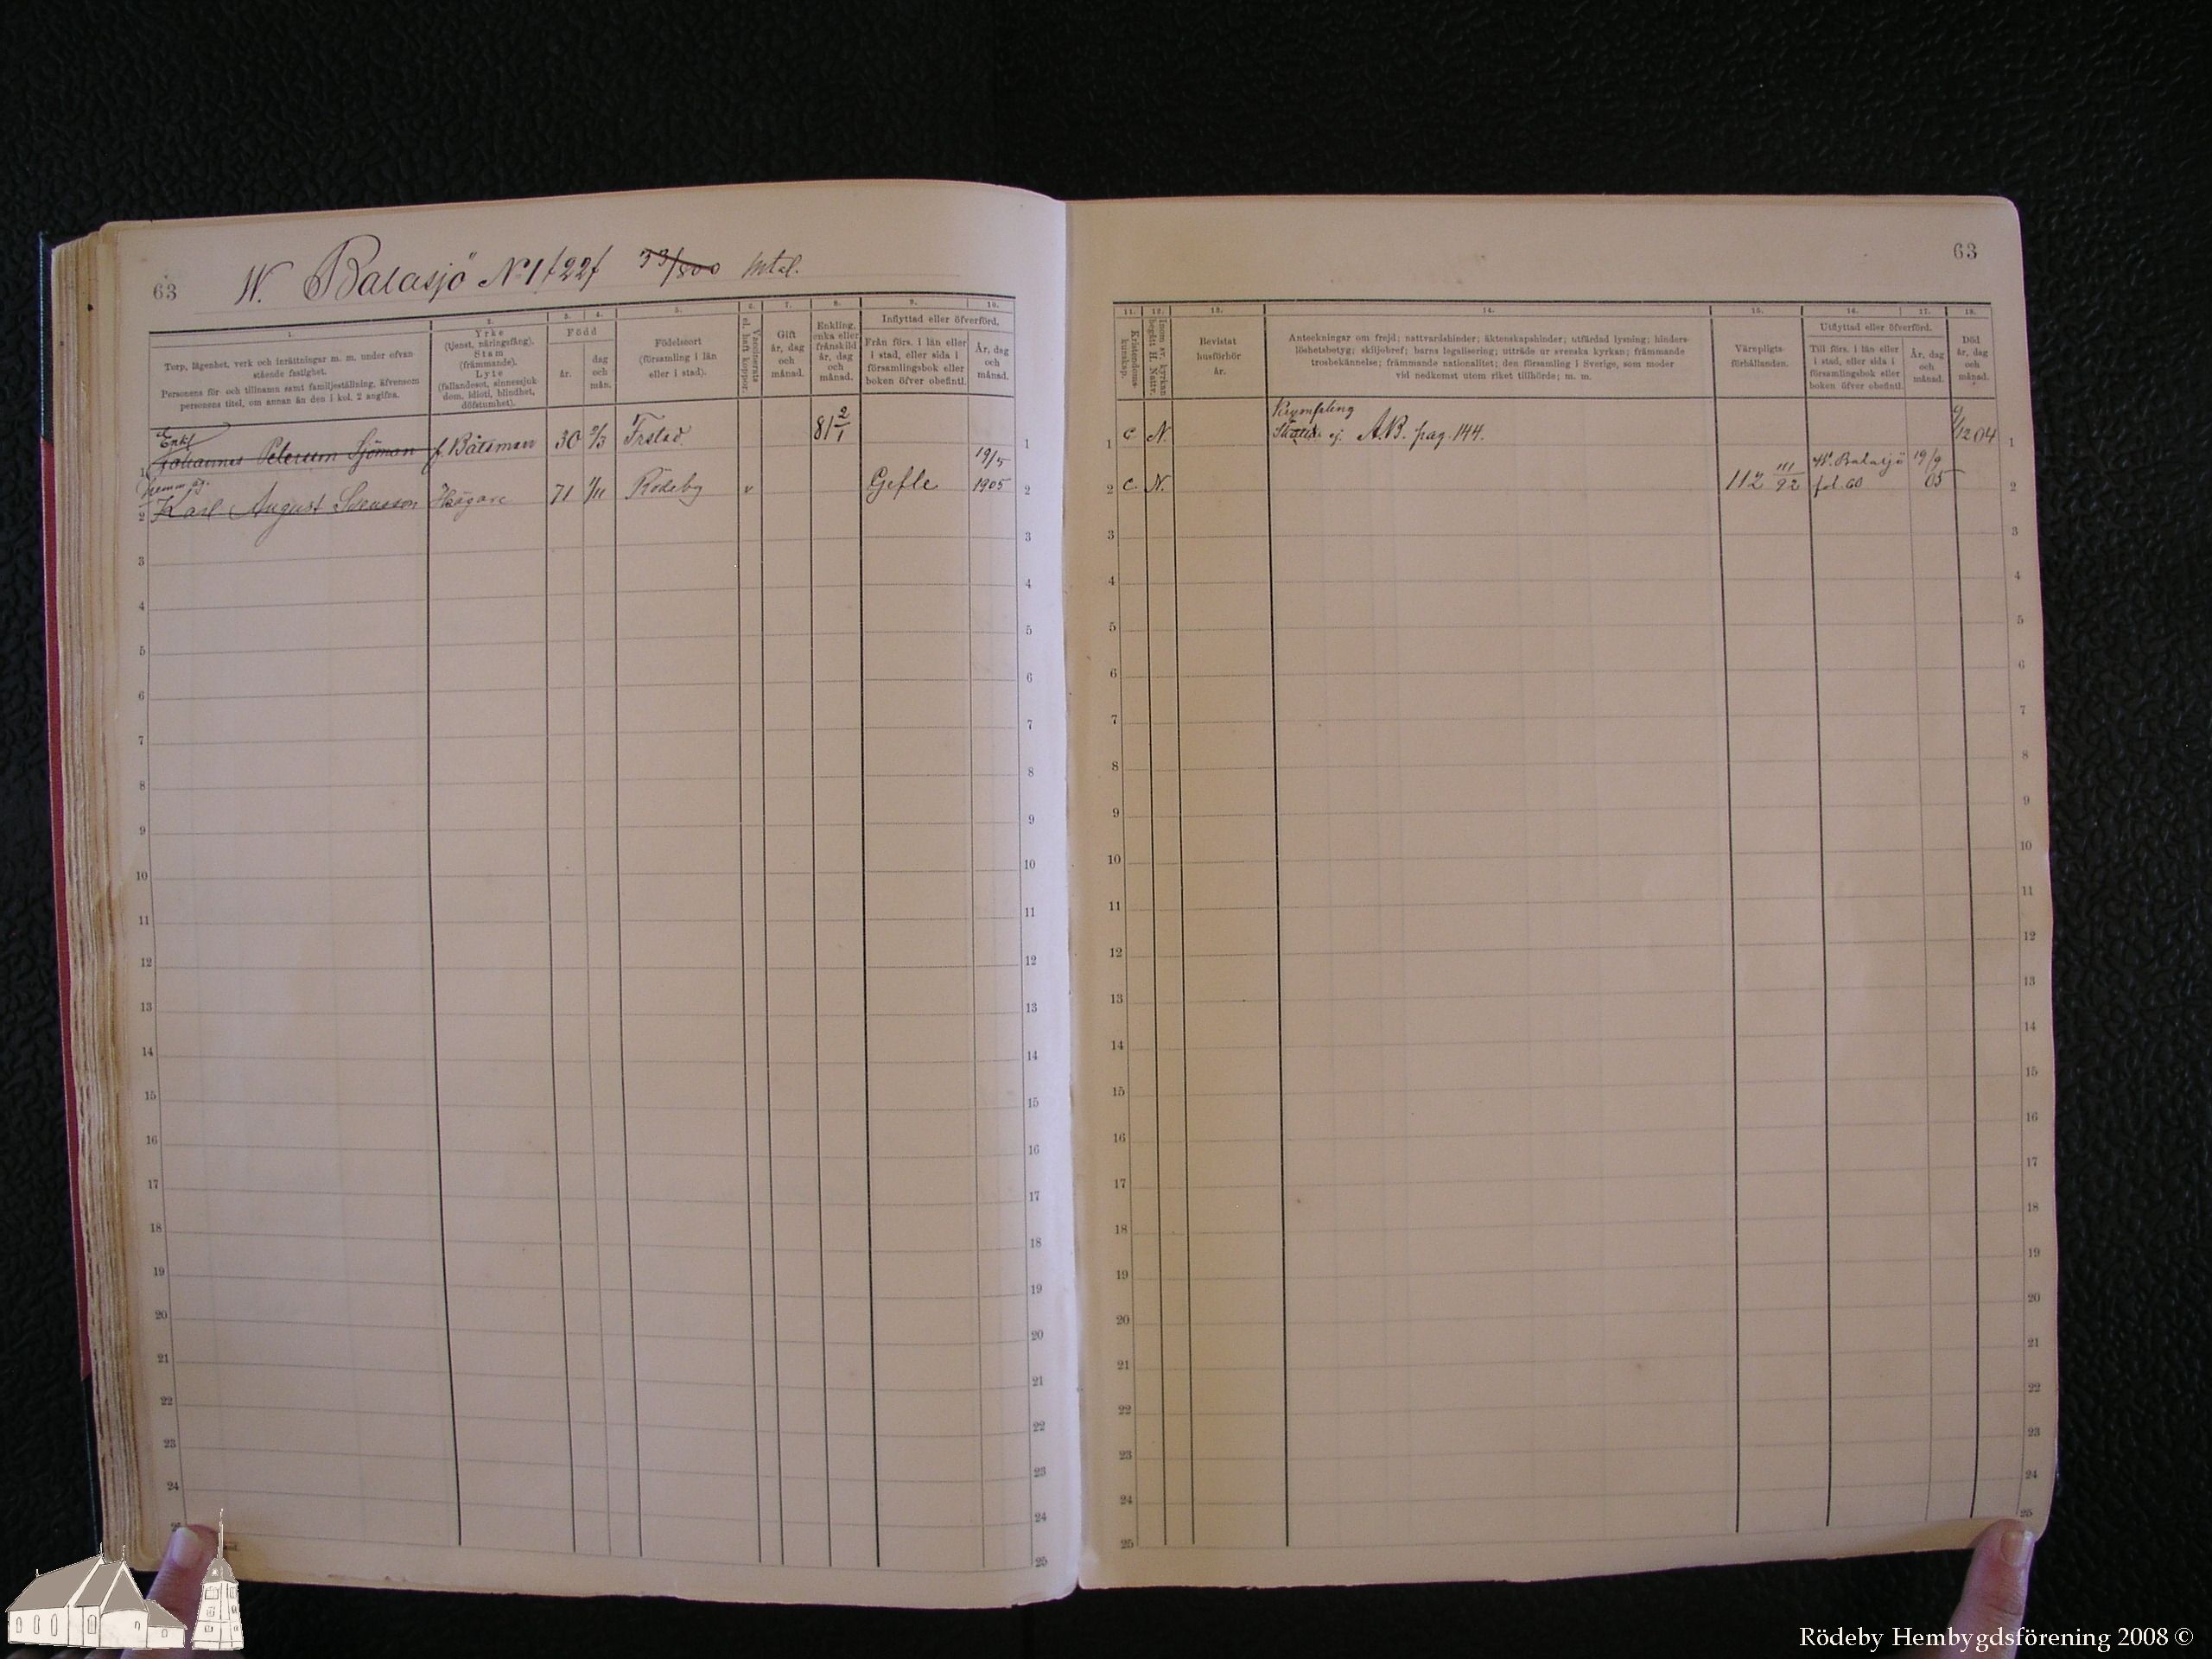 63 W. Balasjö No 1 f22f 33/800 mtal.
1. 2. 3. 4. 5. 6. 7. 8. 9. 10.
Torp, lägenhet, verk och inrättningar m. m. under ofvan
stående fastighet.
Personens för- och tillnamn samt familjeställning, äfvensom
personens titel, om annan än den i kol. 2 angifna.
Yrke
(tjenst, näringsfång),
Stam
(främmande),
Lyte
(fallandesot, sinnessjuk-
dom, idioti, blindhet,
döfstumhet).
Född
år.
dag
och
mån.
Födelseort
(församling i län
eller i stad).
Vaccinerats
el. haft koppor.
Gift
år, dag
och
månad.
Enkling,
enka eller
frånskild
år, dag
och
månad.
Inflyttad eller öfverförd.
Från förs. i län eller
i stad, eller sida i
församlingsbok eller
boken öfver obefintl.
År, dag
och
månad.
Enkl
1 Johannes Petersson Sjöman f. Båtsman 30 2/3 Frstad. 81 2/1 1
Hemm.äg.
2 Karl August Svensson 71 1/11 Rödeby v Gefle 19/5 1905 2
3 3
4 4
5 5
6 6
7 7
8 8
9 9
10 10
11 11
12 12
13 13
14 14
15 15
16 16
17 17
18 18
19 19
20 20
21 21
22 22
23 23
24 24
25
63
11. 12. 13. 14. 15. 16. 17. 18.
Kristendoms-
kunskap.
Inom sv. kyrkan
begått H. Nattv.
Bevistat
husförhör
år.
Anteckningar om frejd; nattvardshinder; äktenskapshinder; utfärdad lysning; hinders-
löshetsbetyg; skiljobref; barns legalisering; utträde ur svenska kyrkan; främmande
trosbekännelse; främmande nationalitet; den församling i Sverige, som moder
vid nedkomst utom riket tillhörde; m. m.
Värnpligts-
förhållanden.
Utflyttad eller öfverförd.
Till förs. i län eller
i stad, eller sida i
församlingsbok eller
boken öfver obefintl.
År, dag
och
månad.
Död
år, dag
och
månad.
1 C. N. ej. A.B. pag. 144. 9/12 04 1
2 C. N. 112 111/92 W. Balasjö fol. 60 19/9 05 2
3 3
4 4
5 5
6 6
7 7
8 8
9 9
10 10
11 11
12 12
13 13
14 14
15 15
16 16
17 17
18 18
19 19
20 20
21 21
22 22
23 23
24 24
25 25
Rödeby Hembygdsförening 2008 ©